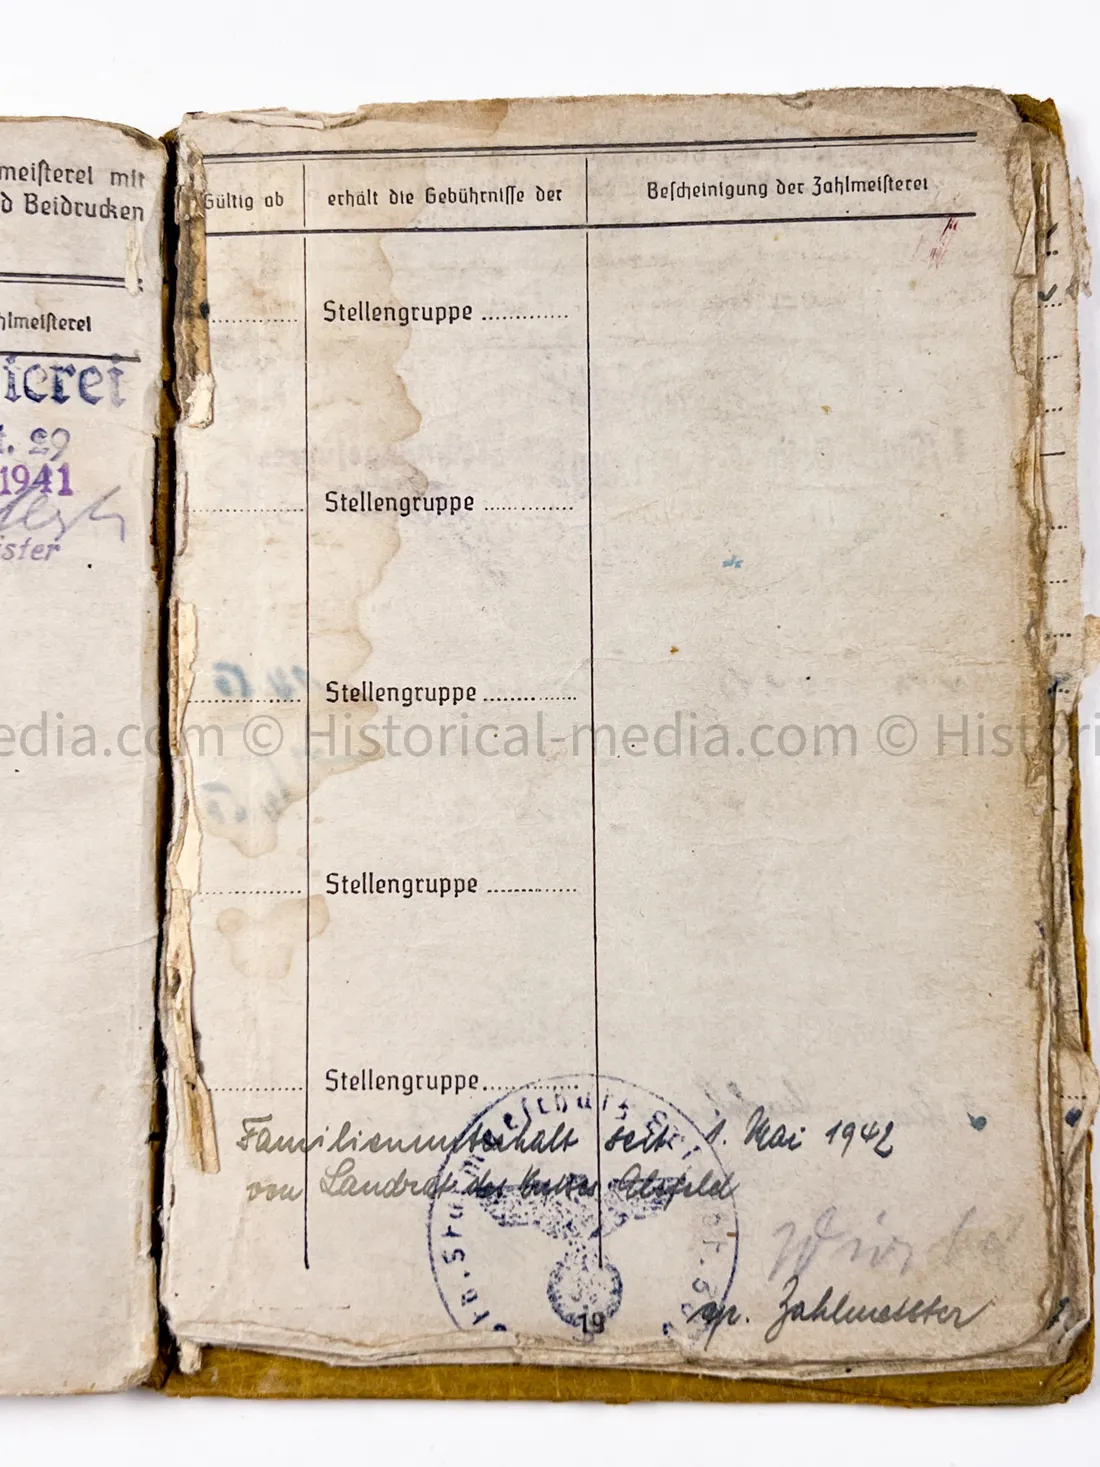 meisterei mit
d Beidrucken
hlmeisterei
ierei
29
1941
ister
Gültig ab
erhält die Gebührnisse der
Bescheinigung der Zahlmeisterei
Stellengruppe ............
Stellengruppe ............
Stellengruppe ............
edia.com © Historical-media.com © Histori
Stellengruppe ............
Stellengruppe ............
Familienunterhalt seit 1. Mai 1942
von Landrat des Kreises Alsfeld
19
Zahlmeister